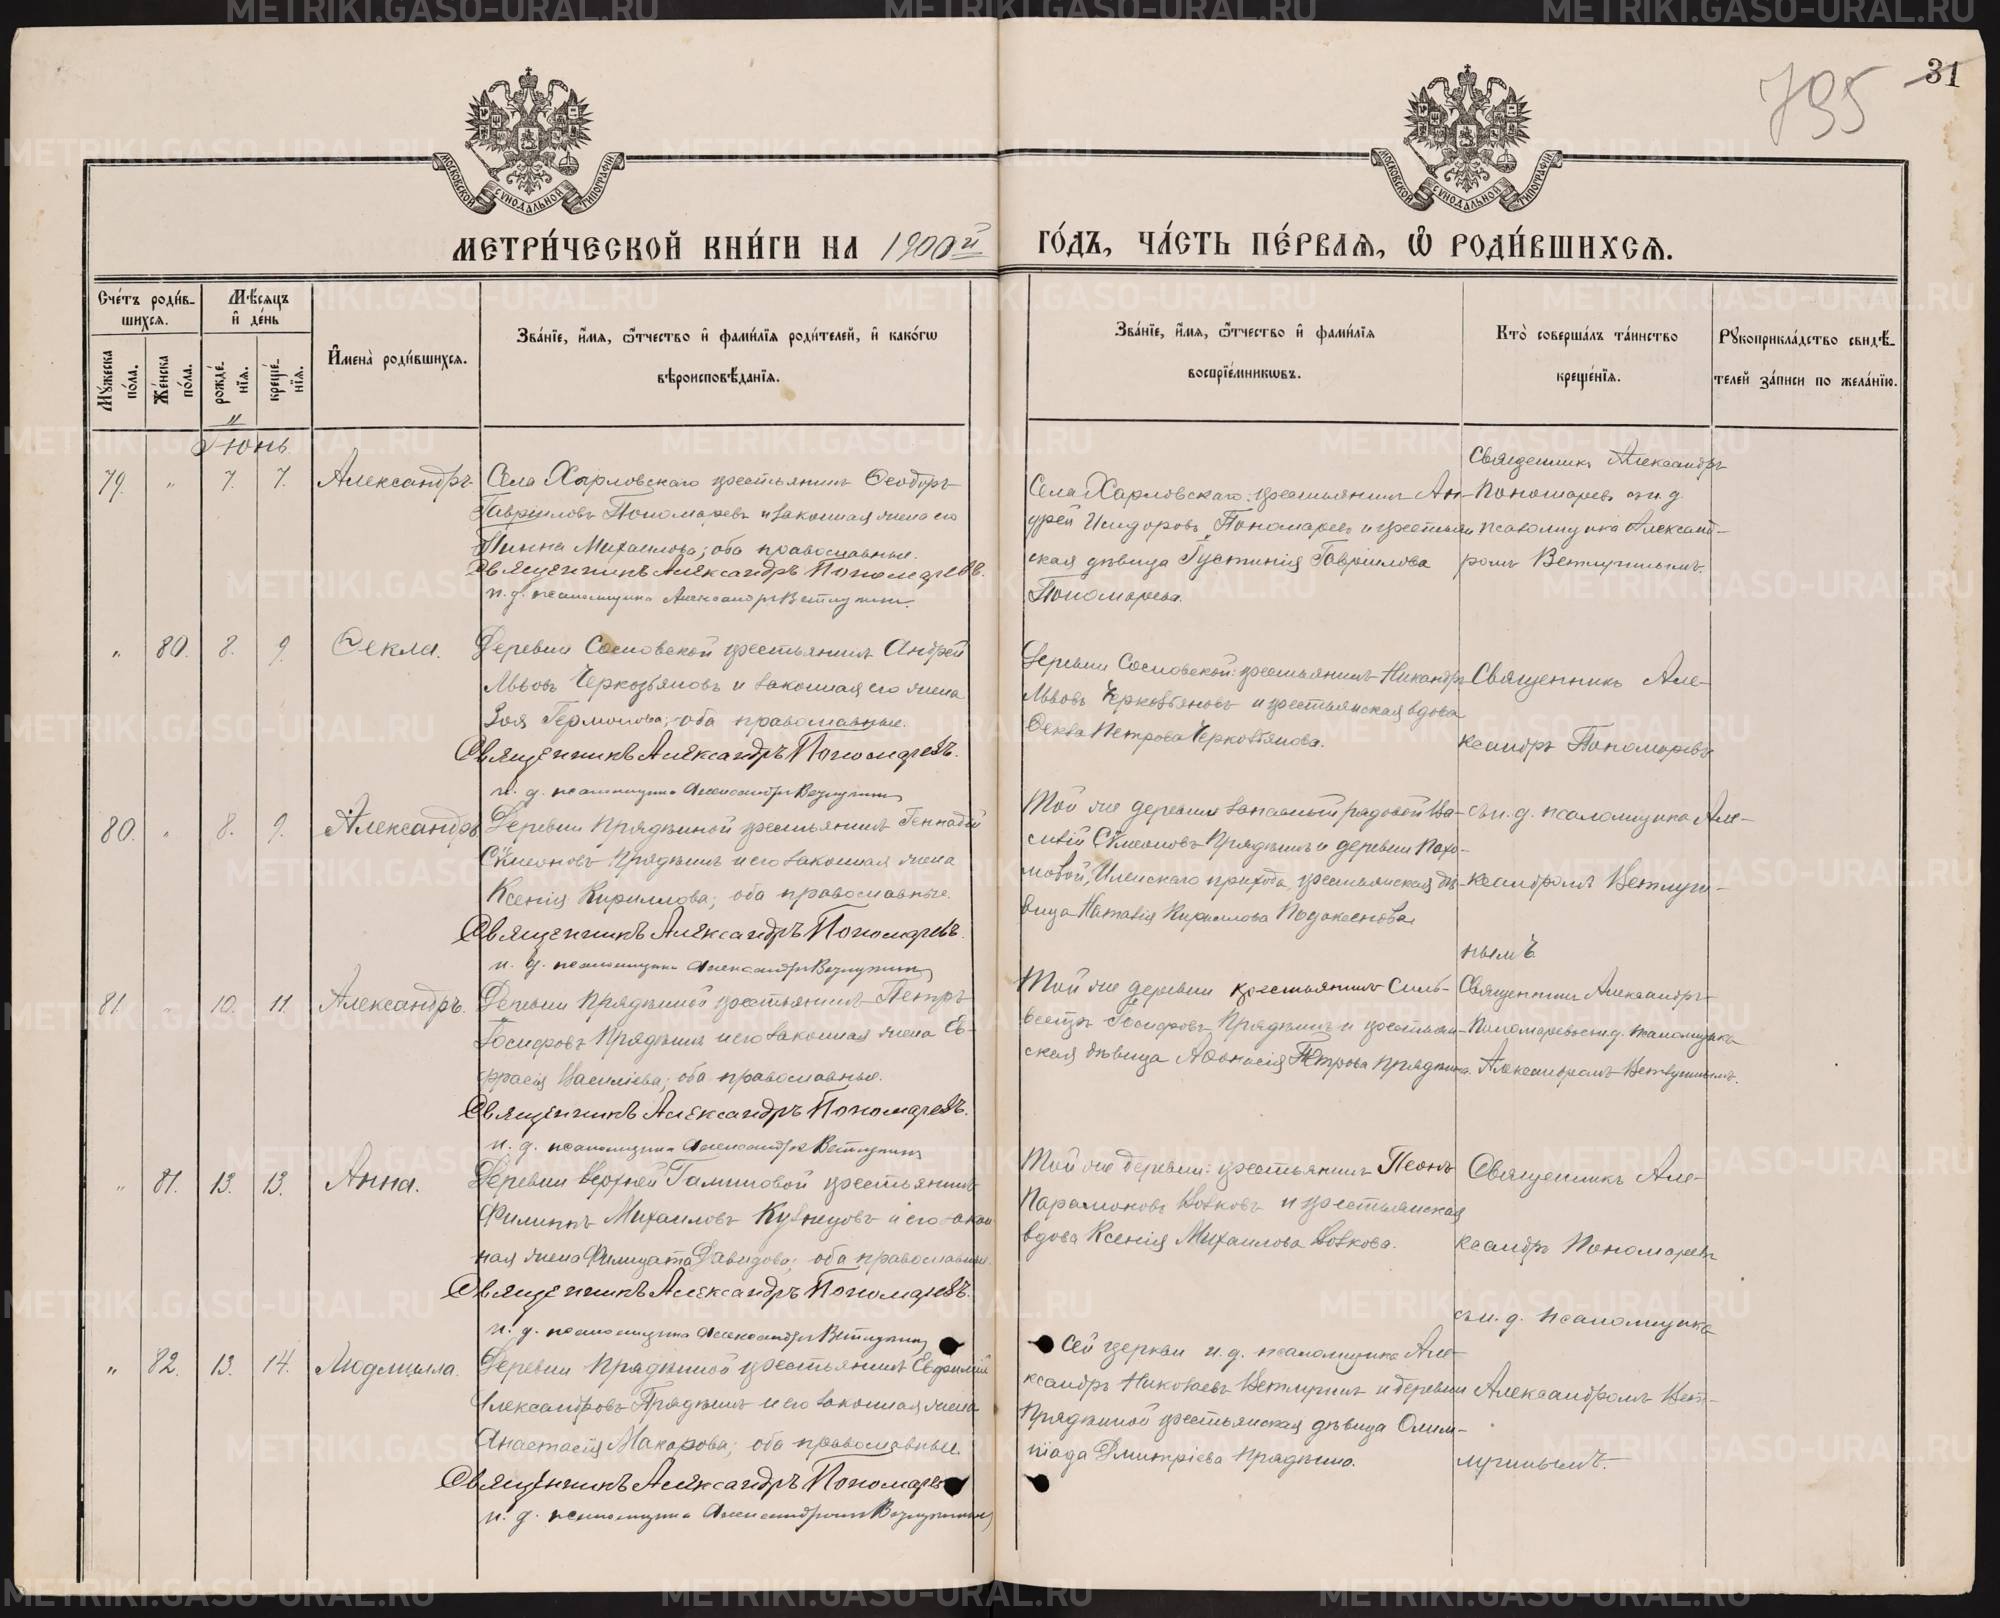 31
795
МОСКОВСКОЙ СѴНОДАЛЬНОЙ ТИПОГРАФІИ
МОСКОВСКОЙ СѴНОДАЛЬНОЙ ТИПОГРАФІИ
МЕТРИ́ЧЕСКОЙ КНИ́ГИ НА 1900й ГО́ДЪ, ЧА́СТЬ ПЕ́РВАѦ, Ѡ҆ РОДИ́ВШИХСѦ.
Сче́тъ роди́в-
шихся.
Мѣ́сяцъ
и҆ де́нь
Мꙋ́жеска по́ла.
Же́нска по́ла.
рожде́нїя.
креще́нїя.
И҆мена̀ роди́вшихся.
Зва́нїе, и҆́мя, ѻ҆́тчество и҆ фами́лїя роди́телей, и҆ како́гѡ
вѣроисповѣ́данїя.
Зва́нїе, и҆́мя, ѻ҆́тчество и҆ фами́лїя
воспрїе́мникѡвъ.
Кто̀ соверша́лъ та́инство
креще́нїя.
Рꙋкоприкла́дство свидѣ́-
телей за́писи по жела́нїю.
Іюнь
79. " 7. 7. Александръ.
Села Харловскаго крестьянинъ Ѳеодоръ
Гавріиловъ Пономаревъ и законная жена его
Пинна Михаилова; оба православные.
Священникъ Александръ Пономаревъ.
и. д. псаломщика Александръ Ветлугинъ.
Села Харловскаго: крестьянинъ Ан-
дрей Исидоровъ Пономаревъ и крестьян
ская дѣвица Іустинія Гавріилова
Пономарева.
Священникъ Александръ
Пономаревъ съ и. д.
псаломщика Александ-
ромъ Ветлугинымъ.
" 80. 8. 9. Ѳекла.
Деревни Сосновской крестьянинъ Андрей
Львовъ Черкозьяновъ и законная его жена
Зоя Гермолова; оба православные.
Священникъ Александръ Пономаревъ.
и. д. псаломщика Александръ Ветлугинъ
Деревни Сосновской: крестьянинъ Никандръ
Львовъ Черкозьяновъ и крестьянская вдова
Ѳекла Петрова Черкозьянова.
Священникъ Але-
ксандръ Пономаревъ
80. " 8. 9. Александръ
Деревни Прядеиной крестьянинъ Геннадій
Сѵмеоновъ Прядеинъ и его законная жена
Ксенія Кириллова; оба православные.
Священникъ Александръ Пономаревъ.
и. д. псаломщика Александръ Ветлугинъ
Той же деревни запасный рядовой Ва-
силій Сѵмеоновъ Прядеинъ и деревни Пахо-
мовой, Иленскаго прихода, крестьянская дѣ-
вица Наталія Кириллова
съ и. д. псаломщика Але-
ксандромъ Ветлуги-
нымъ
81. " 10. 11. Александръ.
Деревни Прядеиной крестьянинъ Петръ
Іосифовъ Прядеинъ и его законная жена Ев-
фрасія Василіева; оба православные.
Священникъ Александръ Пономаревъ.
и. д. псаломщика Александръ Ветлугинъ
Той же деревни крестьянинъ Силь-
вестръ Іосифовъ Прядеинъ и крестьян-
ская дѣвица Аѳанасія Петрова Прядеина.
Священникъ Александръ
Пономаревъ съ и. д. псаломщика
Александромъ Ветлугинымъ.
" 81. 13. 13. Анна.
Деревни Верхней крестьянинъ
Филиппъ Михаиловъ Кузнецовъ и его закон
ная жена Филицата Давидова; оба православные.
Священникъ Александръ Пономаревъ.
и. д. псаломщика Александръ Ветлугинъ
Той же деревни: крестьянинъ Леонъ
Парамоновъ Волковъ и крестьянская
вдова Ксенія Михаилова Волкова.
Священникъ Але-
ксандръ Пономаревъ
съ и. д. псаломщика
" 82. 13. 14. Людмилла.
Деревни Прядеиной крестьянинъ Евфимій
Александровъ Прядеинъ и его законная жена
Анастасія Макарова; оба православные.
Священникъ Александръ Пономаревъ
и. д. псаломщика Александръ Ветлугинъ
Сей церкви и. д. псаломщика Але-
ксандръ Николаевъ Ветлугинъ и деревни
Прядеиной крестьянская дѣвица Олим-
піада Димитріева Прядеина.
Александромъ Вет-
лугинымъ.
METRIKI.GASO-URAL.RU